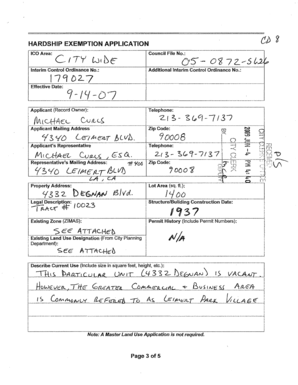 CD 8
HARDSHIP EXEMPTION APPLICATION
ICD Area:
CITY WIDE
Council File No.:
05-0872-S426
Interim Control Ordinance No.:
179027
Additional Interim Control Ordinance No.:
Effective Date:
9-14-07
Applicant (Record Owner):
MICHAEL CURLS
Telephone:
213-369-7137
Applicant Mailing Address
4340 LEIMERT BLVD.
Zip Code:
90008
Applicant's Representative
MICHAEL CURLS, ESQ.
Telephone:
213-369-7137
Representative's Mailing Address:
4340 LEIMERT BLVD
LA, CA
Zip Code:
90008
CITY CLERK
Property Address:
4332 DEGNAN Blvd.
Lot Area (sq. ft.):
1400
Legal Description:
TRACT # 10023
Structure/Building Construction Date:
1937
Existing Zone (ZIMAS):
SEE ATTACHED
Permit History (Include Permit Numbers):
N/A
Existing Land Use Designation (From City Planning
Department):
SEE ATTACHED
Describe Current Use (Include size in square feet, height, etc.):
THIS PARTICULAR UNIT (4332 DEGNAN) IS VACANT.
HOWEVER, THE GREATER COMMERCIAL + BUSINESS AREA
IS COMMONLY REFERED TO AS LEIMERT PARK VILLAGE
Note: A Master Land Use Application is not required.
Page 3 of 5